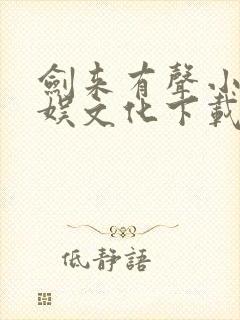 劍来有聲小
娛文化下載
低靜語